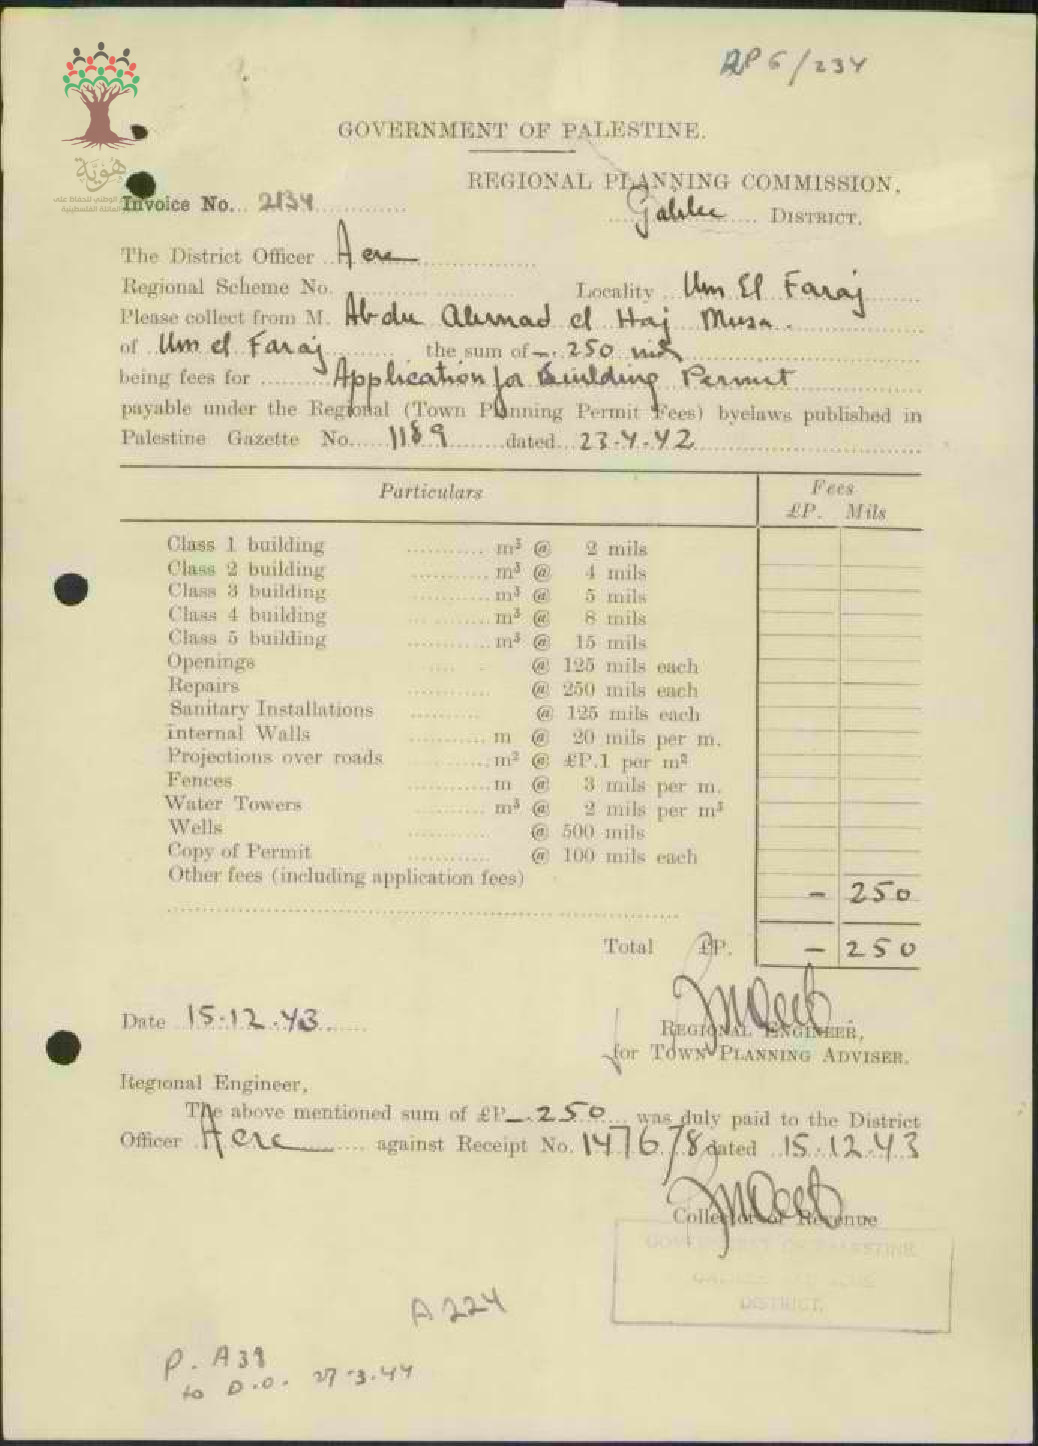 RP 6/234
هُوِيَّة
GOVERNMENT OF PALESTINE.
REGIONAL PLANNING COMMISSION,
Invoice No. 2134
Galilee DISTRICT.
The District Officer Acre
Regional Scheme No. Locality Um El Faraj
Please collect from M. Abdu Ahmad el Haj Musa.
of Um el Faraj the sum of -. 250 mils
being fees for Application for Building Permit
payable under the Regional (Town Planning Permit Fees) byelaws published in
Palestine Gazette No. 1189 dated 23.4.42
Particulars Fees
£P. Mils
Class 1 building m³ @ 2 mils
Class 2 building m³ @ 4 mils
Class 3 building m³ @ 5 mils
Class 4 building m³ @ 8 mils
Class 5 building m³ @ 15 mils
Openings @ 125 mils each
Repairs @ 250 mils each
Sanitary Installations @ 125 mils each
Internal Walls m @ 20 mils per m.
Projections over roads m² @ £P.1 per m²
Fences m @ 3 mils per m.
Water Towers m³ @ 2 mils per m³
Wells @ 500 mils
Copy of Permit @ 100 mils each
Other fees (including application fees)
- 250
Total £P. - 250
Date 15.12.43
REGIONAL ENGINEER,
for TOWN PLANNING ADVISER.
Regional Engineer,
The above mentioned sum of £P -.250 was duly paid to the District
Officer Acre against Receipt No. 147678 dated 15.12.43
Collector of Revenue
GOVERNMENT OF PALESTINE
DISTRICT.
A 224
P. A39
to D.O. 27.3.44